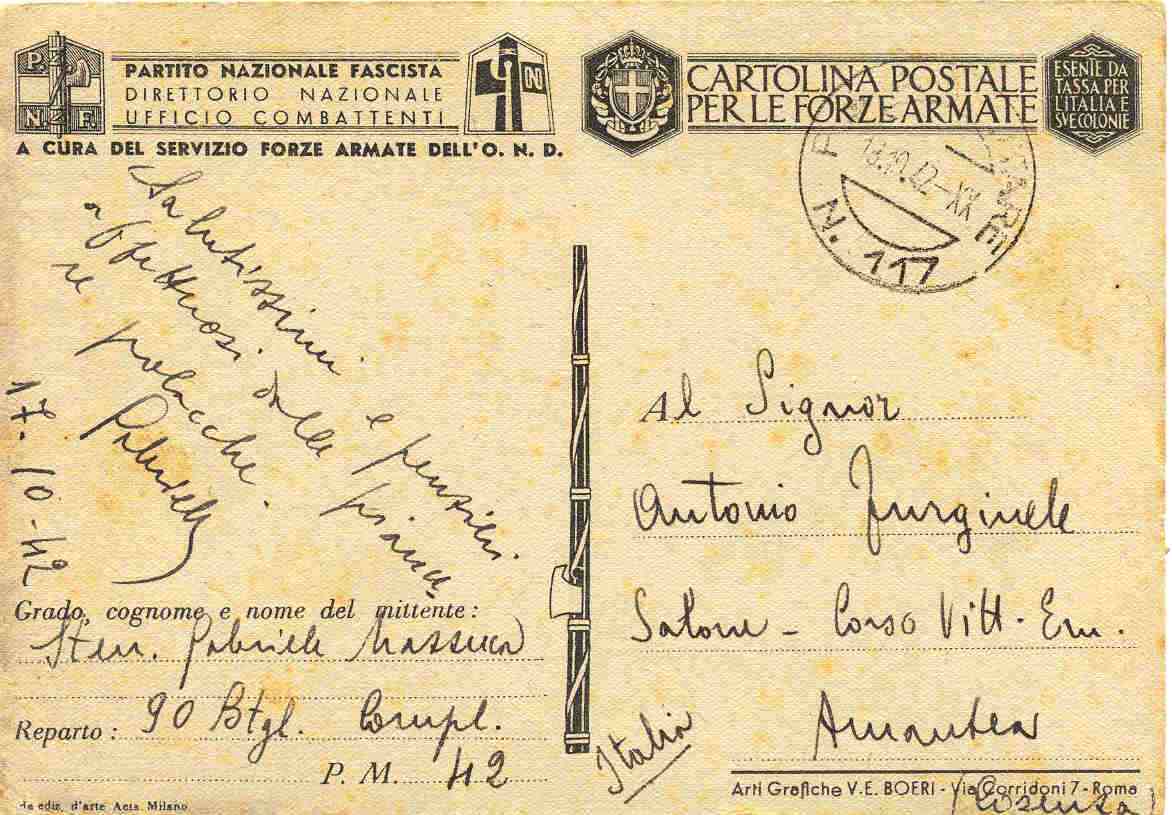 P. N. F.
PARTITO NAZIONALE FASCISTA
DIRETTORIO NAZIONALE
UFFICIO COMBATTENTI
A CURA DEL SERVIZIO FORZE ARMATE DELL'O. N. D.
CARTOLINA POSTALE
PER LE FORZE ARMATE
ESENTE DA
TASSA PER
L'ITALIA E
SVE COLONIE
18.10.42-XX
N. 117
Salutissimi e pensieri
affettuosi dalle pianu
re polacche.
17-10-42
Al Signor
Antonio Furginele
Salone - Corso Vitt. Em.
Amantea
(Cosenza)
Italia
Grado, cognome e nome del mittente:
Sten. Gabriele Massuca
Reparto: 90 Btgl. Compl.
P. M. 42
Arti Grafiche V. E. BOERI - Via Corridoni 7 - Roma
da ediz. d'arte Acta Milano